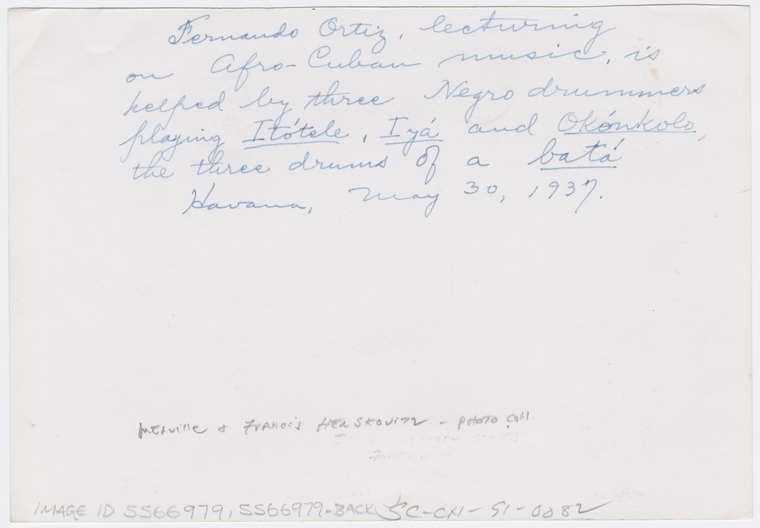 Fernando Ortiz, lecturing
on Afro-Cuban music, is
helped by three Negro drummers
playing Itótele, Iyá and Okónkolo,
the three drums of a batá
Havana, May 30, 1937.
Melville & Francis Herskovitz - Photo Coll.
IMAGE ID 5566979, 5566979-BACK SC-CN-91-0882